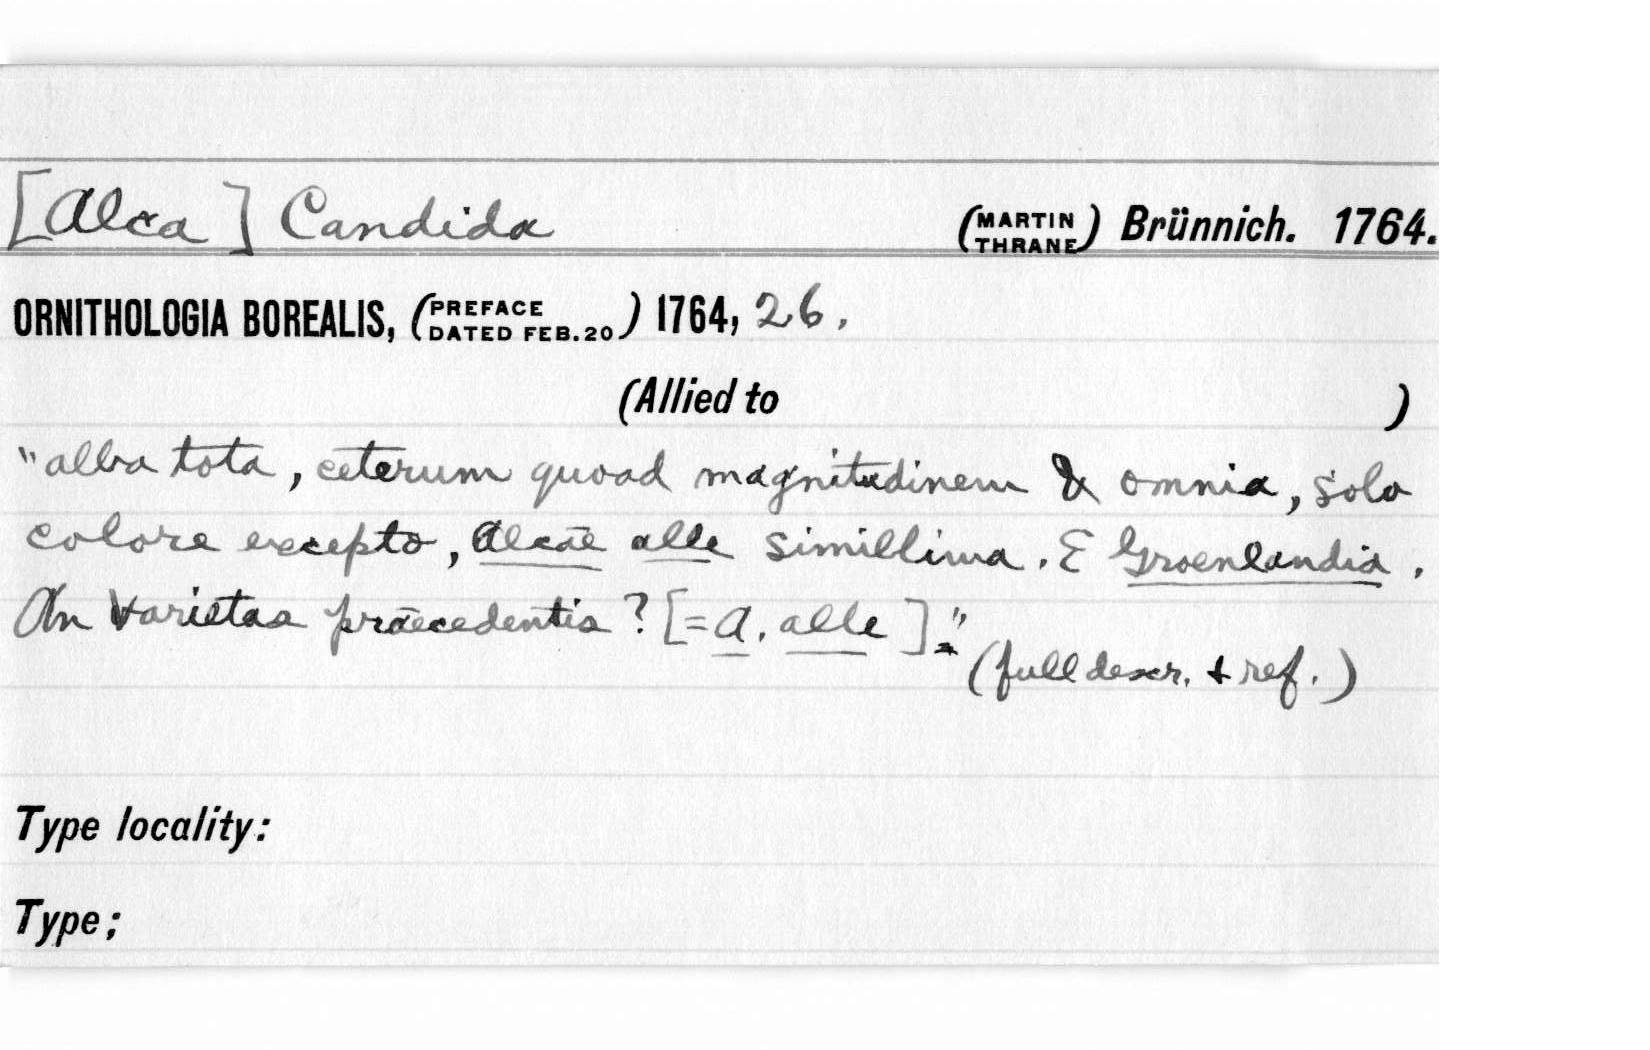 [Alca] Candida (MARTIN THRANE) Brünnich. 1764.
ORNITHOLOGIA BOREALIS, (PREFACE DATED FEB. 20) 1764, 26.
(Allied to )
"alba tota, ceterum quoad magnitudinem & omnia, solo
colore excepto, Alcae alle simillima. E Groenlandia.
An Varietas praecedentis? [= A. alle]."
(full descr. & ref.)
Type locality:
Type;